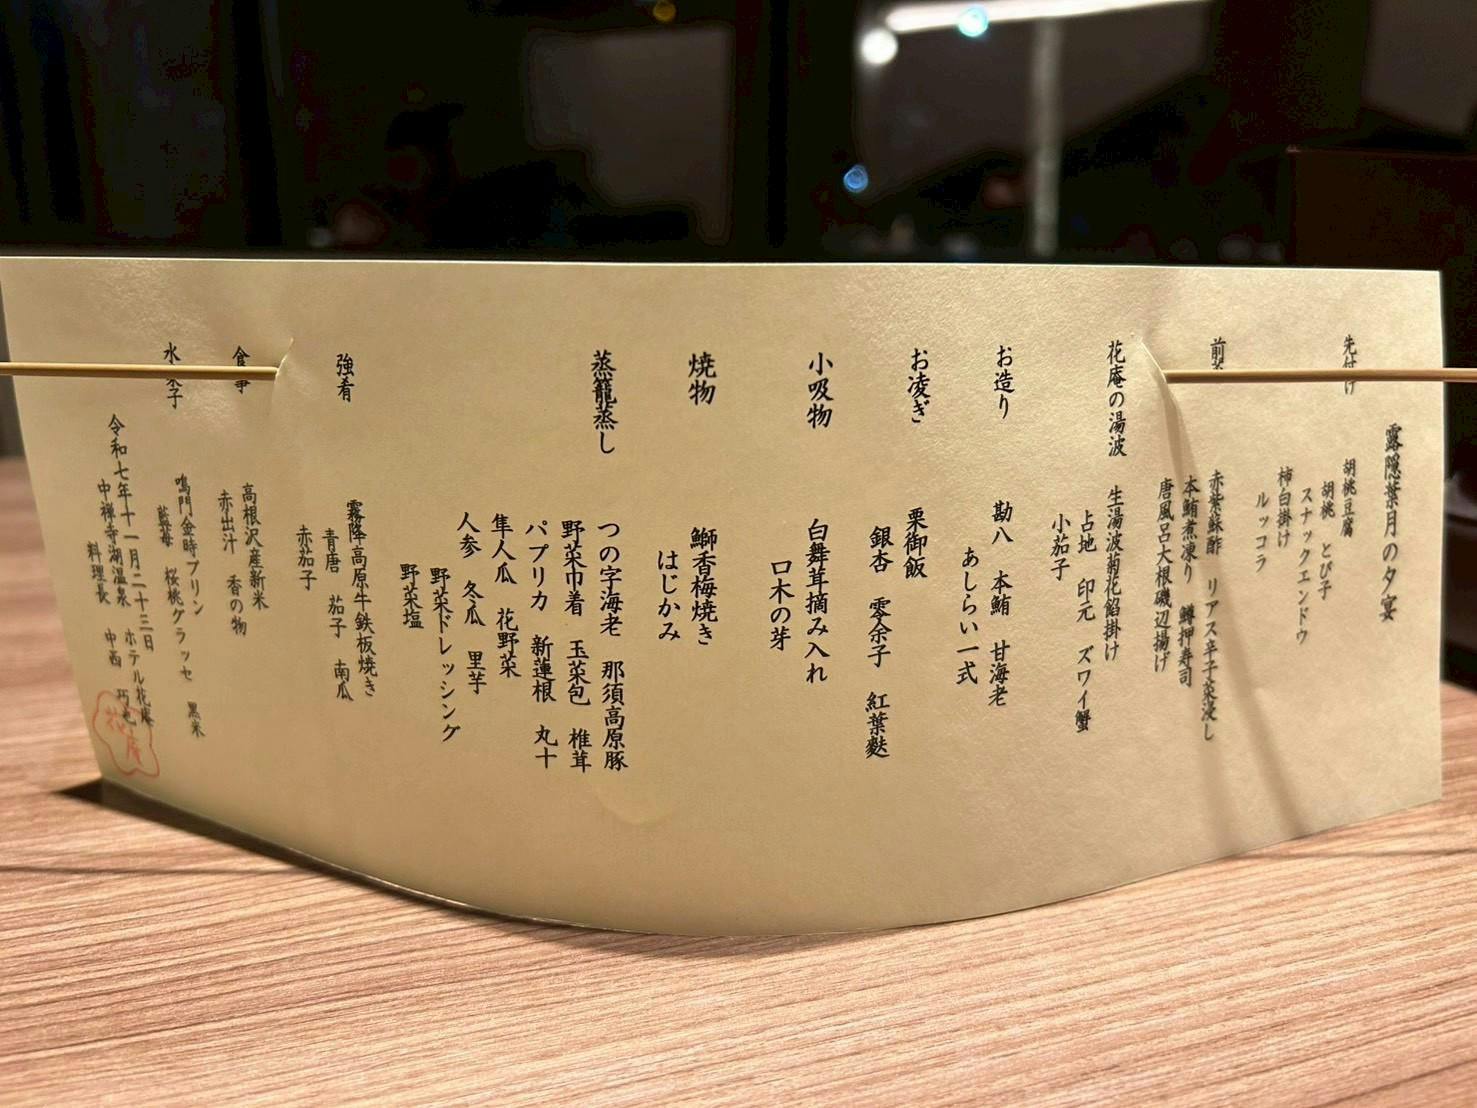 露隠葉月の夕宴
先付け 胡桃豆腐
胡桃 とび子
スナックエンドウ
柿白掛け
ルッコラ
前 赤紫蘇酢 リアス辛子菜浸し
本鮪煮凍り 鱒押寿司
唐風呂大根磯辺揚げ
花庵の湯波 生湯波菊花餡掛け
占地 印元 ズワイ蟹
小茄子
お造り 勘八 本鮪 甘海老
あしらい一式
お凌ぎ 栗御飯
銀杏 零余子 紅葉麩
小吸物 白舞茸摘み入れ
口木の芽
焼物 鰤香梅焼き
はじかみ
蒸籠蒸し つの字海老 那須高原豚
野菜巾着 玉菜包 椎茸
パプリカ 新蓮根 丸十
隼人瓜 花野菜
人参 冬瓜 里芋
野菜ドレッシング
野菜塩
強肴 霧降高原牛鉄板焼き
青唐 茄子 南瓜
赤茄子
食事 高根沢産新米
赤出汁 香の物
水菓子 鳴門金時プリン 黒米
藍苺 桜桃グラッセ
令和七年十一月二十三日
中禅寺湖温泉 ホテル花庵
料理長 中西
花庵